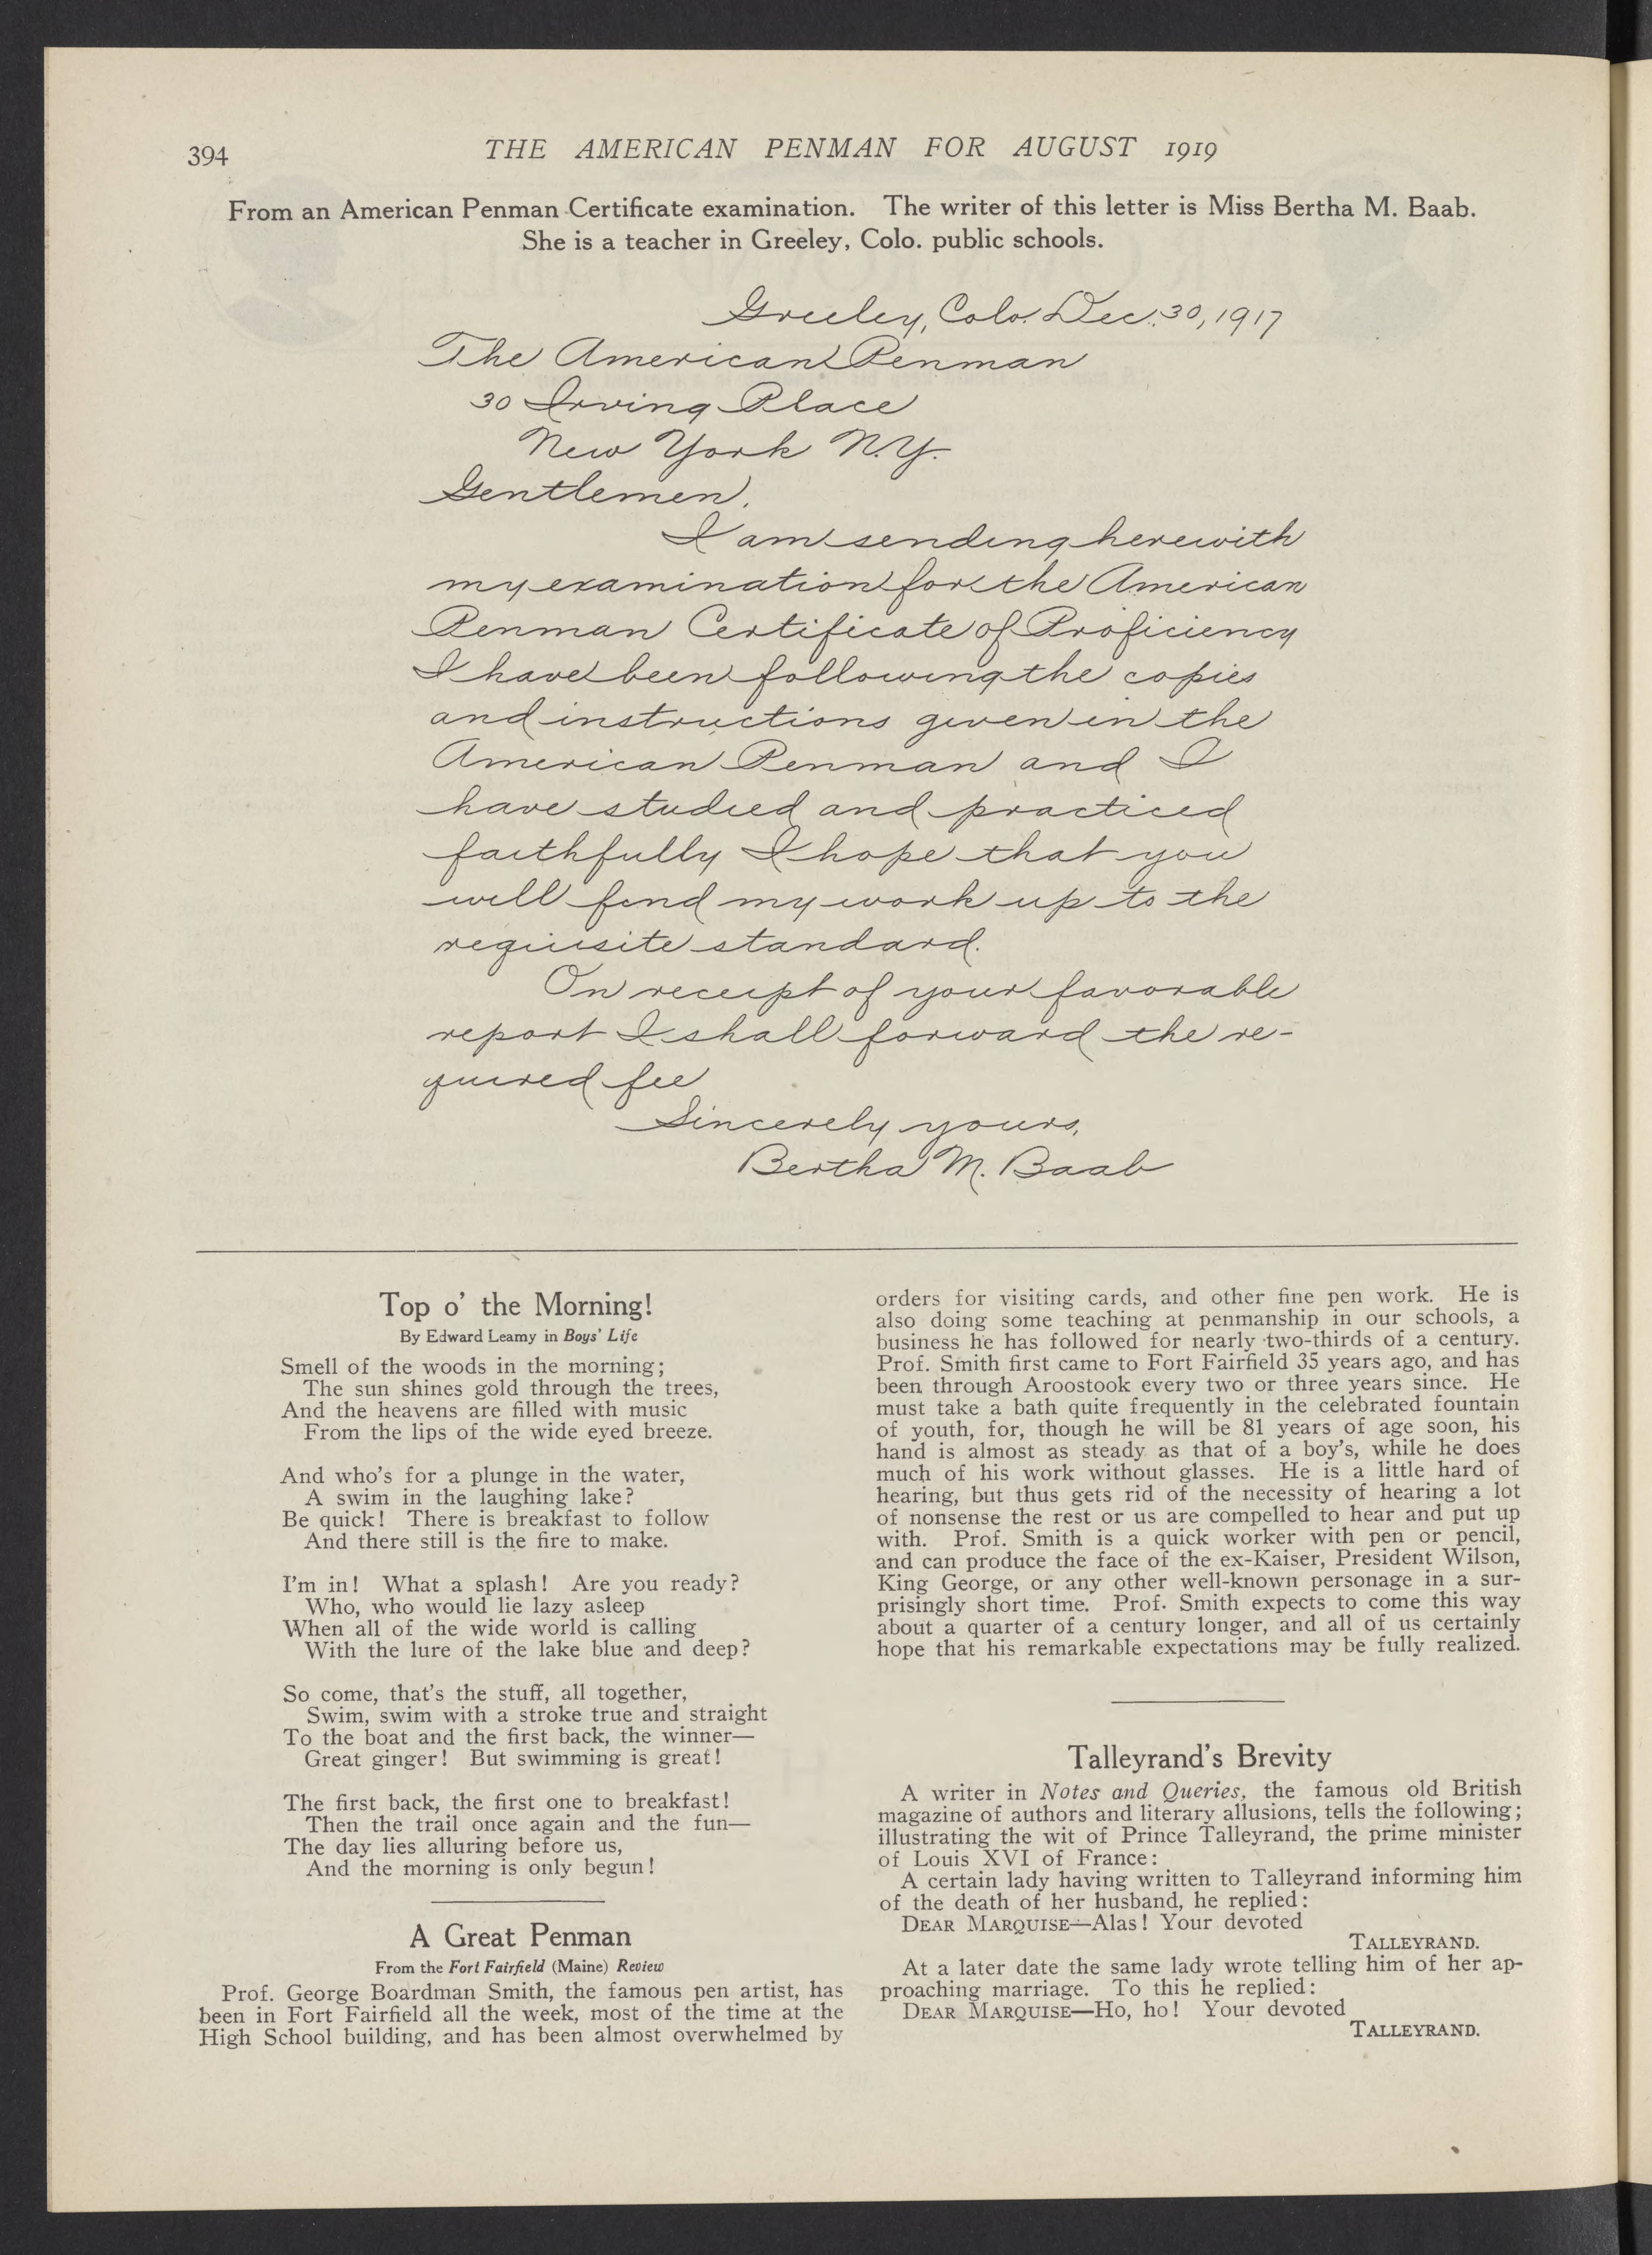 394
THE AMERICAN PENMAN FOR AUGUST 1919
From an American Penman Certificate examination. The writer of this letter is Miss Bertha M. Baab.
She is a teacher in Greeley, Colo. public schools.
Greeley, Colo. Dec. 30, 1917
The American Penman
30 Irving Place
New York N.Y.
Gentlemen,
I am sending herewith
my examination for the American
Penman Certificate of Proficiency
I have been following the copies
and instructions given in the
American Penman and I
have studied and practiced
faithfully I hope that you
will find my work up to the
requisite standard.
On receipt of your favorable
report I shall forward the re-
quired fee
Sincerely yours,
Bertha M. Baab
Top o' the Morning!
By Edward Leamy in Boys' Life
Smell of the woods in the morning;
The sun shines gold through the trees,
And the heavens are filled with music
From the lips of the wide eyed breeze.
And who's for a plunge in the water,
A swim in the laughing lake?
Be quick! There is breakfast to follow
And there still is the fire to make.
I'm in! What a splash! Are you ready?
Who, who would lie lazy asleep
When all of the wide world is calling
With the lure of the lake blue and deep?
So come, that's the stuff, all together,
Swim, swim with a stroke true and straight
To the boat and the first back, the winner—
Great ginger! But swimming is great!
The first back, the first one to breakfast!
Then the trail once again and the fun—
The day lies alluring before us,
And the morning is only begun!
A Great Penman
From the Fort Fairfield (Maine) Review
Prof. George Boardman Smith, the famous pen artist, has
been in Fort Fairfield all the week, most of the time at the
High School building, and has been almost overwhelmed by
orders for visiting cards, and other fine pen work. He is
also doing some teaching at penmanship in our schools, a
business he has followed for nearly two-thirds of a century.
Prof. Smith first came to Fort Fairfield 35 years ago, and has
been through Aroostook every two or three years since. He
must take a bath quite frequently in the celebrated fountain
of youth, for, though he will be 81 years of age soon, his
hand is almost as steady as that of a boy's, while he does
much of his work without glasses. He is a little hard of
hearing, but thus gets rid of the necessity of hearing a lot
of nonsense the rest or us are compelled to hear and put up
with. Prof. Smith is a quick worker with pen or pencil,
and can produce the face of the ex-Kaiser, President Wilson,
King George, or any other well-known personage in a sur-
prisingly short time. Prof. Smith expects to come this way
about a quarter of a century longer, and all of us certainly
hope that his remarkable expectations may be fully realized.
Talleyrand's Brevity
A writer in Notes and Queries, the famous old British
magazine of authors and literary allusions, tells the following;
illustrating the wit of Prince Talleyrand, the prime minister
of Louis XVI of France:
A certain lady having written to Talleyrand informing him
of the death of her husband, he replied:
DEAR MARQUISE—Alas! Your devoted
TALLEYRAND.
At a later date the same lady wrote telling him of her ap-
proaching marriage. To this he replied:
DEAR MARQUISE—Ho, ho! Your devoted
TALLEYRAND.